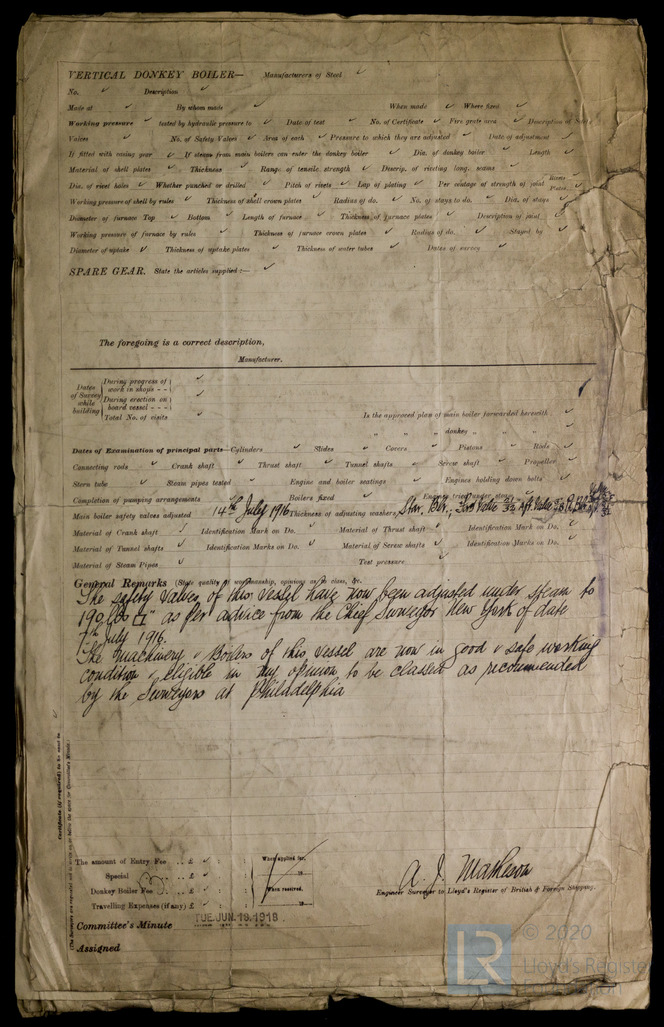 VERTICAL DONKEY BOILER— Manufacturers of Steel
No. Description
Made at By whom made When made Where fixed
Working pressure tested by hydraulic pressure to Date of test No. of Certificate Fire grate area Description of Safety
Valves No. of Safety Valves Area of each Pressure to which they are adjusted Date of adjustment
If fitted with easing gear If steam from main boilers can enter the donkey boiler Dia. of donkey boiler Length
Material of shell plates Thickness Range of tensile strength Descrip. of riveting long. seams
Dia. of rivet holes Whether punched or drilled Pitch of rivets Lap of plating Per centage of strength of joint Rivets Plates
Working pressure of shell by rules Thickness of shell crown plates Radius of do. No. of stays to do. Dia. of stays
Diameter of furnace Top Bottom Length of furnace Thickness of furnace plates Description of joint
Working pressure of furnace by rules Thickness of furnace crown plates Radius of do. Stayed by
Diameter of uptake Thickness of uptake plates Thickness of water tubes Dates of survey
SPARE GEAR. State the articles supplied:—
The foregoing is a correct description,
Manufacturer.
Dates of Survey while building
During progress of work in shops - -
During erection on board vessel - - -
Total No. of visits
Is the approved plan of main boiler forwarded herewith
" " " donkey " " "
Dates of Examination of principal parts—Cylinders Slides Covers Pistons Rods
Connecting rods Crank shaft Thrust shaft Tunnel shafts Screw shaft Propeller
Stern tube Steam pipes tested Engine and boiler seatings Engines holding down bolts
Completion of pumping arrangements Boilers fixed Engines tried under steam
Main boiler safety valves adjusted 14th July 1916 Thickness of adjusting washers Star. Blr.
Material of Crank shaft Identification Mark on Do. Material of Thrust shaft Identification Mark on Do.
Material of Tunnel shafts Identification Marks on Do. Material of Screw shafts Identification Marks on Do.
Material of Steam Pipes Test pressure
General Remarks (State quality of workmanship, opinions as to class, &c.
The safety valves of this vessel have now been adjusted under steam to
190 lbs □" as per advice from the Chief Surveyor New York of date
7th July 1916.
The Machinery & Boilers of this vessel are now in good & safe working
condition & eligible in my opinion to be classed as recommended
by the Surveyors at Philadelphia
Certificate (if required) to be sent to
The amount of Entry Fee .. £ : :
Special .. £ : :
Donkey Boiler Fee .. £ : :
Travelling Expenses (if any) £ : :
When applied for,
19
When received,
19
A. J. Matheson
Engineer Surveyor to Lloyd's Register of British & Foreign Shipping.
Committee's Minute TUE. JUN. 18. 1918
Assigned
LR © 2020
Lloyd's Register